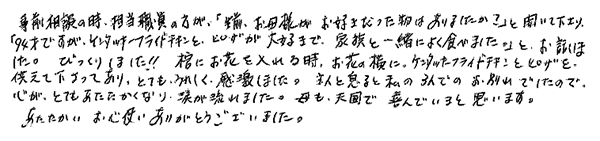 事前相談の時、担当職員の方が、「生前、お母様が お好きだった物はありましたか?」と聞いて下さり、
「94才ですが、ケンタッキーフライドチキンと、ピザが大好きで、家族と一緒によく食べました。」と、お話しま
した。 びっくりしました!! 棺にお花を入れる時、お花の横に、ケンタッキーフライドチキンとピザを、
供えて下さってあり、とても、うれしく、感激しました。 主人と息子と私の3人での お別れでしたので、
心が、とてもあたたかくなり、涙が流れました。 母も、天国で 喜んでいると思います。
あたたかい お心使い ありがとうございました。